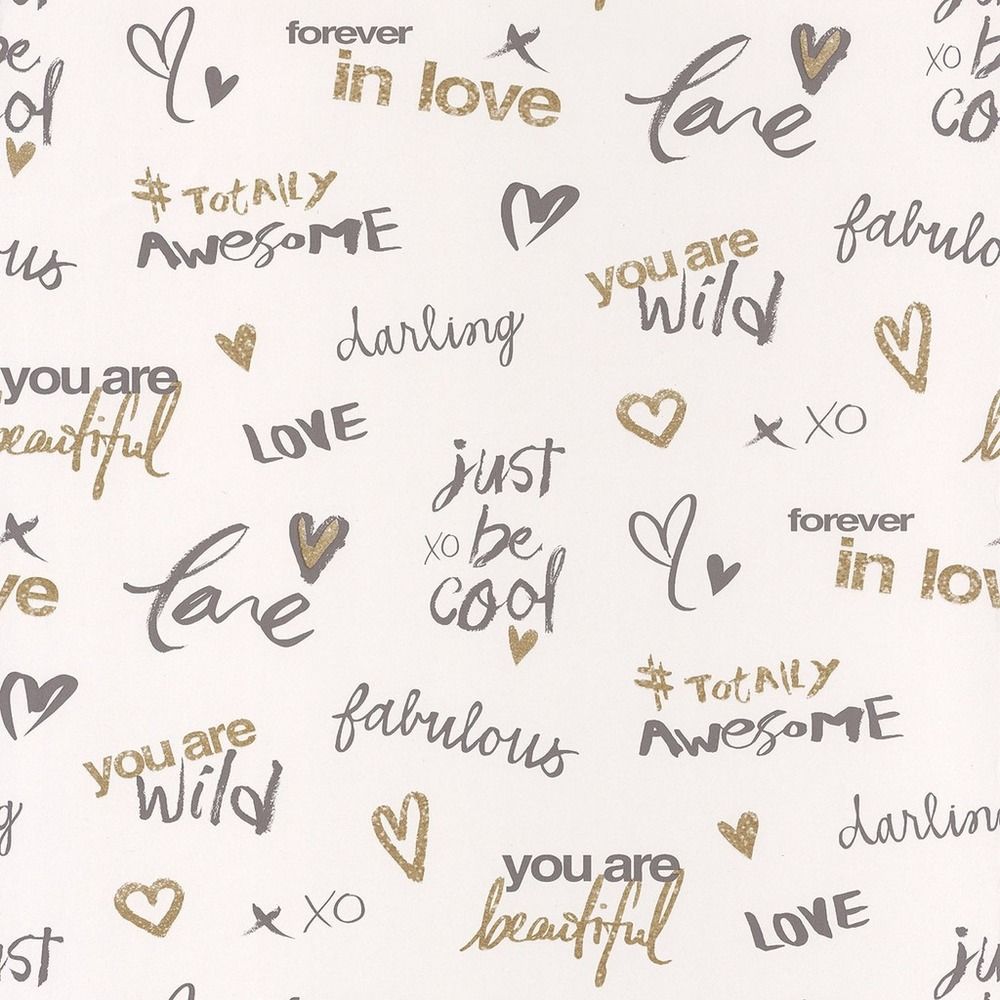 be
cool
forever
in love
love
xo be
cool
#TOTALLY
AWESOME
fabulous
you are
wild
fabulous
darling
you are
beautiful
LOVE
x XO
just
xo be
cool
love
love
forever
in love
#TOTALLY
AWESOME
fabulous
you are
wild
darling
you are
beautiful
x XO
LOVE
just
just